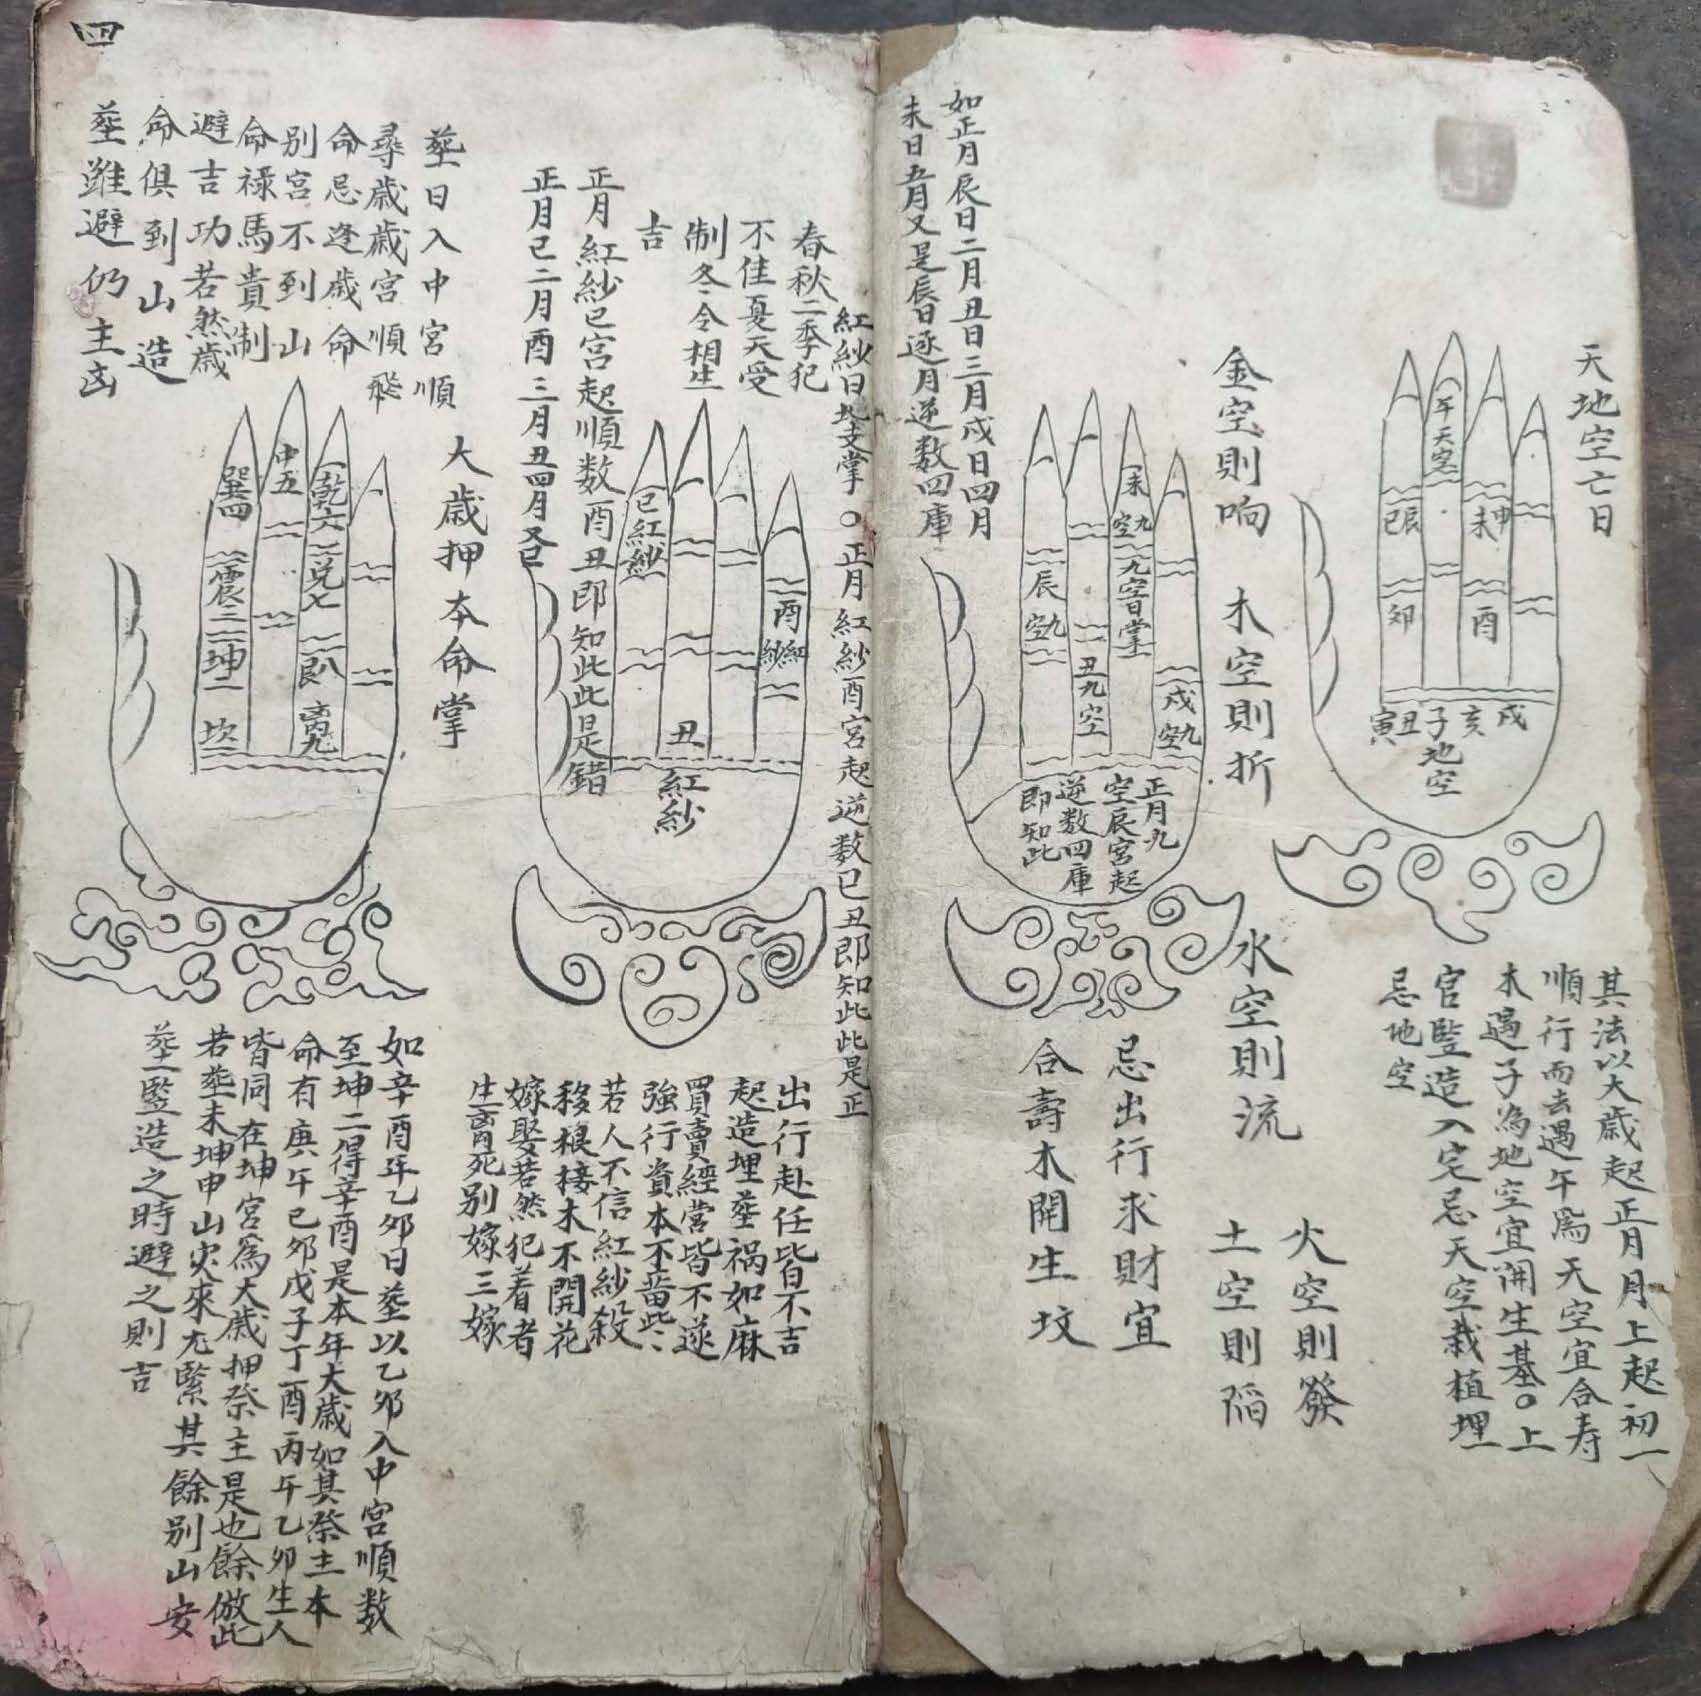 天地空亡日
午天空
申未
酉
辰巳
卯
戌亥子丑寅
地空
其法以大歲起正月月上起初一
順行而去遇午為天空宜合寿
木遇子為地空宜開生基○上
官監造入宅忌天空栽植埋
忌地空
金空則响 木空則折 水空則流 火空則發
土空則陷
未九空
九空日掌
辰九空
丑九空
戌九空
正月九
空辰宮起
逆数四庫
即知此
忌出行求財宜
合壽木開生坟
如正月辰日二月丑日三月戌日四月
未日五月又是辰日逐月逆数四庫
紅紗日地支掌○正月紅紗酉宮起逆数巳丑即知此此是正
春秋二季犯
不佳夏天受
制冬令相生
吉
正月紅紗巳宮起順数酉丑即知此此是錯
正月巳二月酉三月丑四月又巳
巳紅紗
酉紅紗
丑
紅紗
出行赴任皆不吉
起造埋塟禍如麻
買賣經営皆不遂
強行資本不蓄些
若人不信紅紗殺
移根接木不開花
嫁娶若然犯着者
生离死别嫁三嫁
大歲押本命掌
塟日入中宮順
尋歲歲宮順飛
命忌逢歲命
别宮不到山
命禄馬貴制
避吉功若然歲
命俱到山造
塟雖避仍主凶
中五
乾六
兑七
艮八
离九
巽四
震三
坤二
坎一
如辛酉年乙卯日塟以乙卯入中宮順数
至坤二得辛酉是本年大歲如其祭主本
命有庚午己卯戊子丁酉丙午乙卯生人
皆同在坤宮為大歲押祭主是也餘倣此
若塟未坤申山灾來尤緊其餘别山安
塟監造之時避之則吉
四